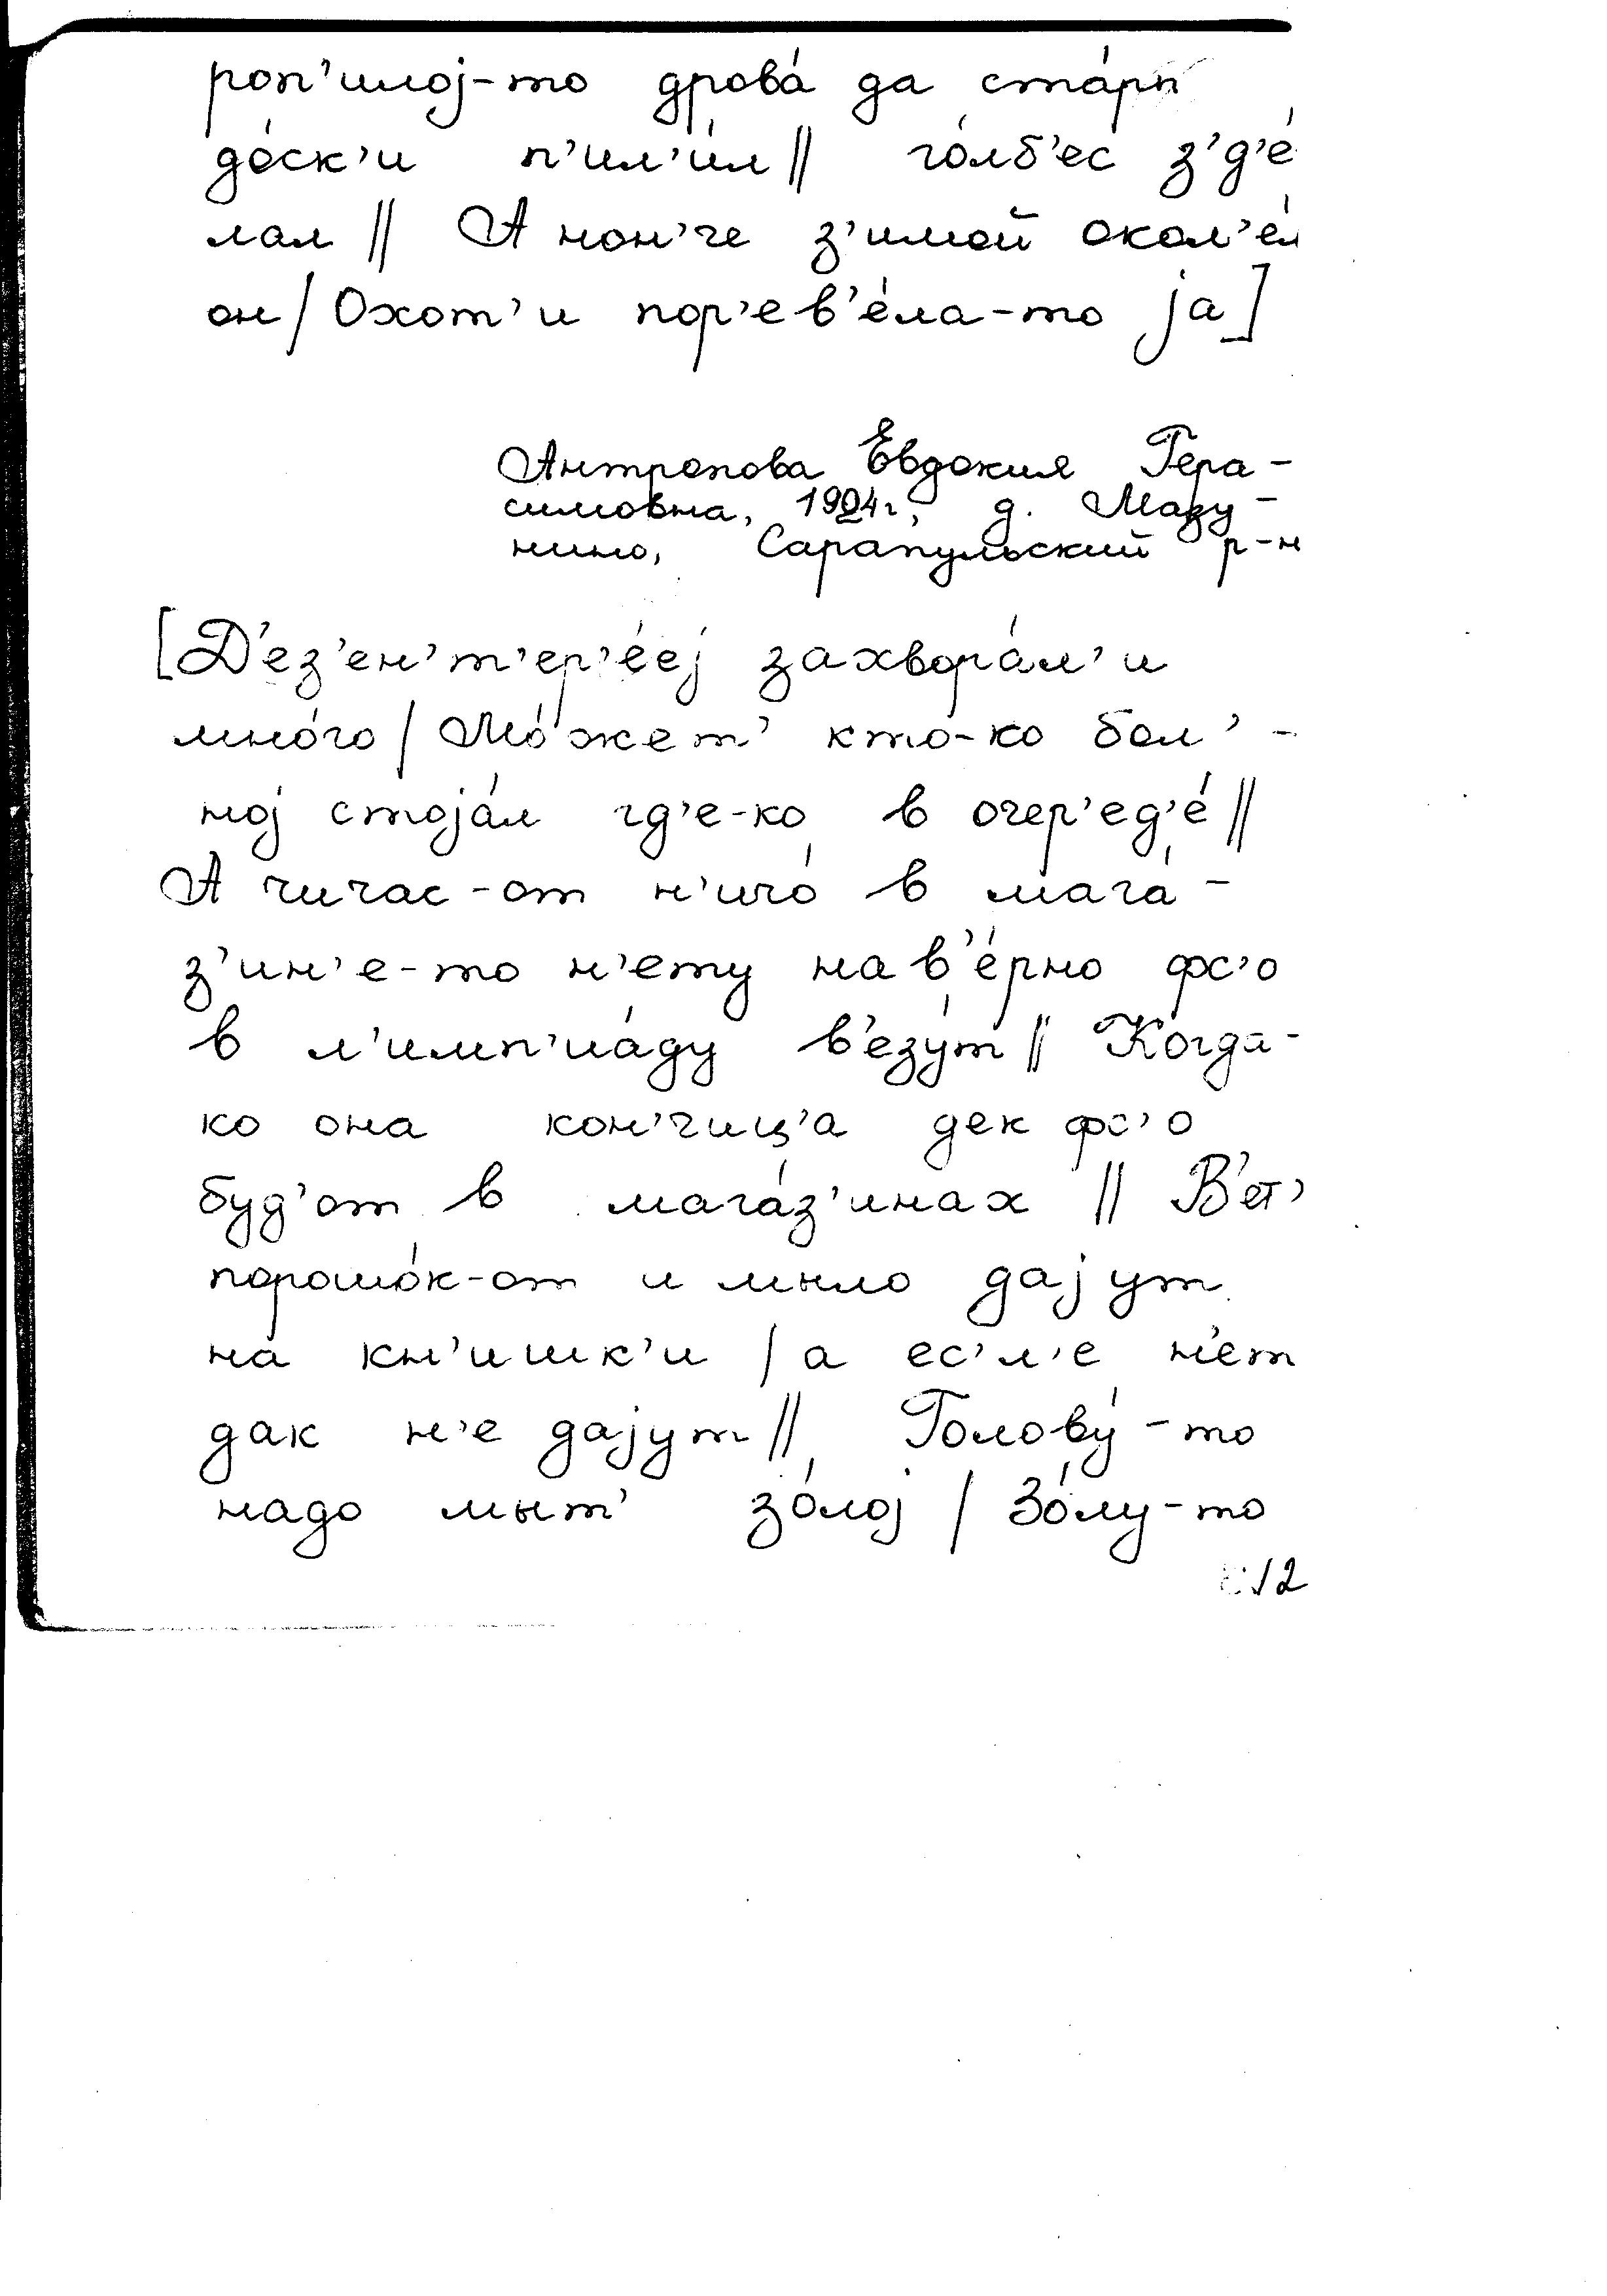 роп'илој-то дрова́ да ста́ры
до́ск'и п'ил'и́л || го́лб'ес з'д'е́
лал || А нон'че з'имой окол'е́л
он / Охот'и пор'ев'е́ла-то jа]
Антропова Евдокия Гера-
симовна, 1904г, д. Мазу-
нино, Сарапульский р-н
[Д'ез'ен'т'ер'е́еј захвора́л'и
мно́го / Мо́жет' кто́-ко бол'-
ној стоjа́л гд'е-ко в очер'ед'е́ ||
А чичас-от н'ичо́ в мага́-
з'ин'е-то н'ету нав'е́рно фс'о
в л'имп'иа́ду в'езу́т || Когда-
ко она кон'чиц'а дек фс'о
буд'от в мага́з'инах || В'ет'
порошо́к-от и мыло даjут
на́ кн'ишк'и / а ес'л'е н'ет
дак н'е даjут || Голову́-то
надо мыт' зо́лој / Зо́лу-то
12